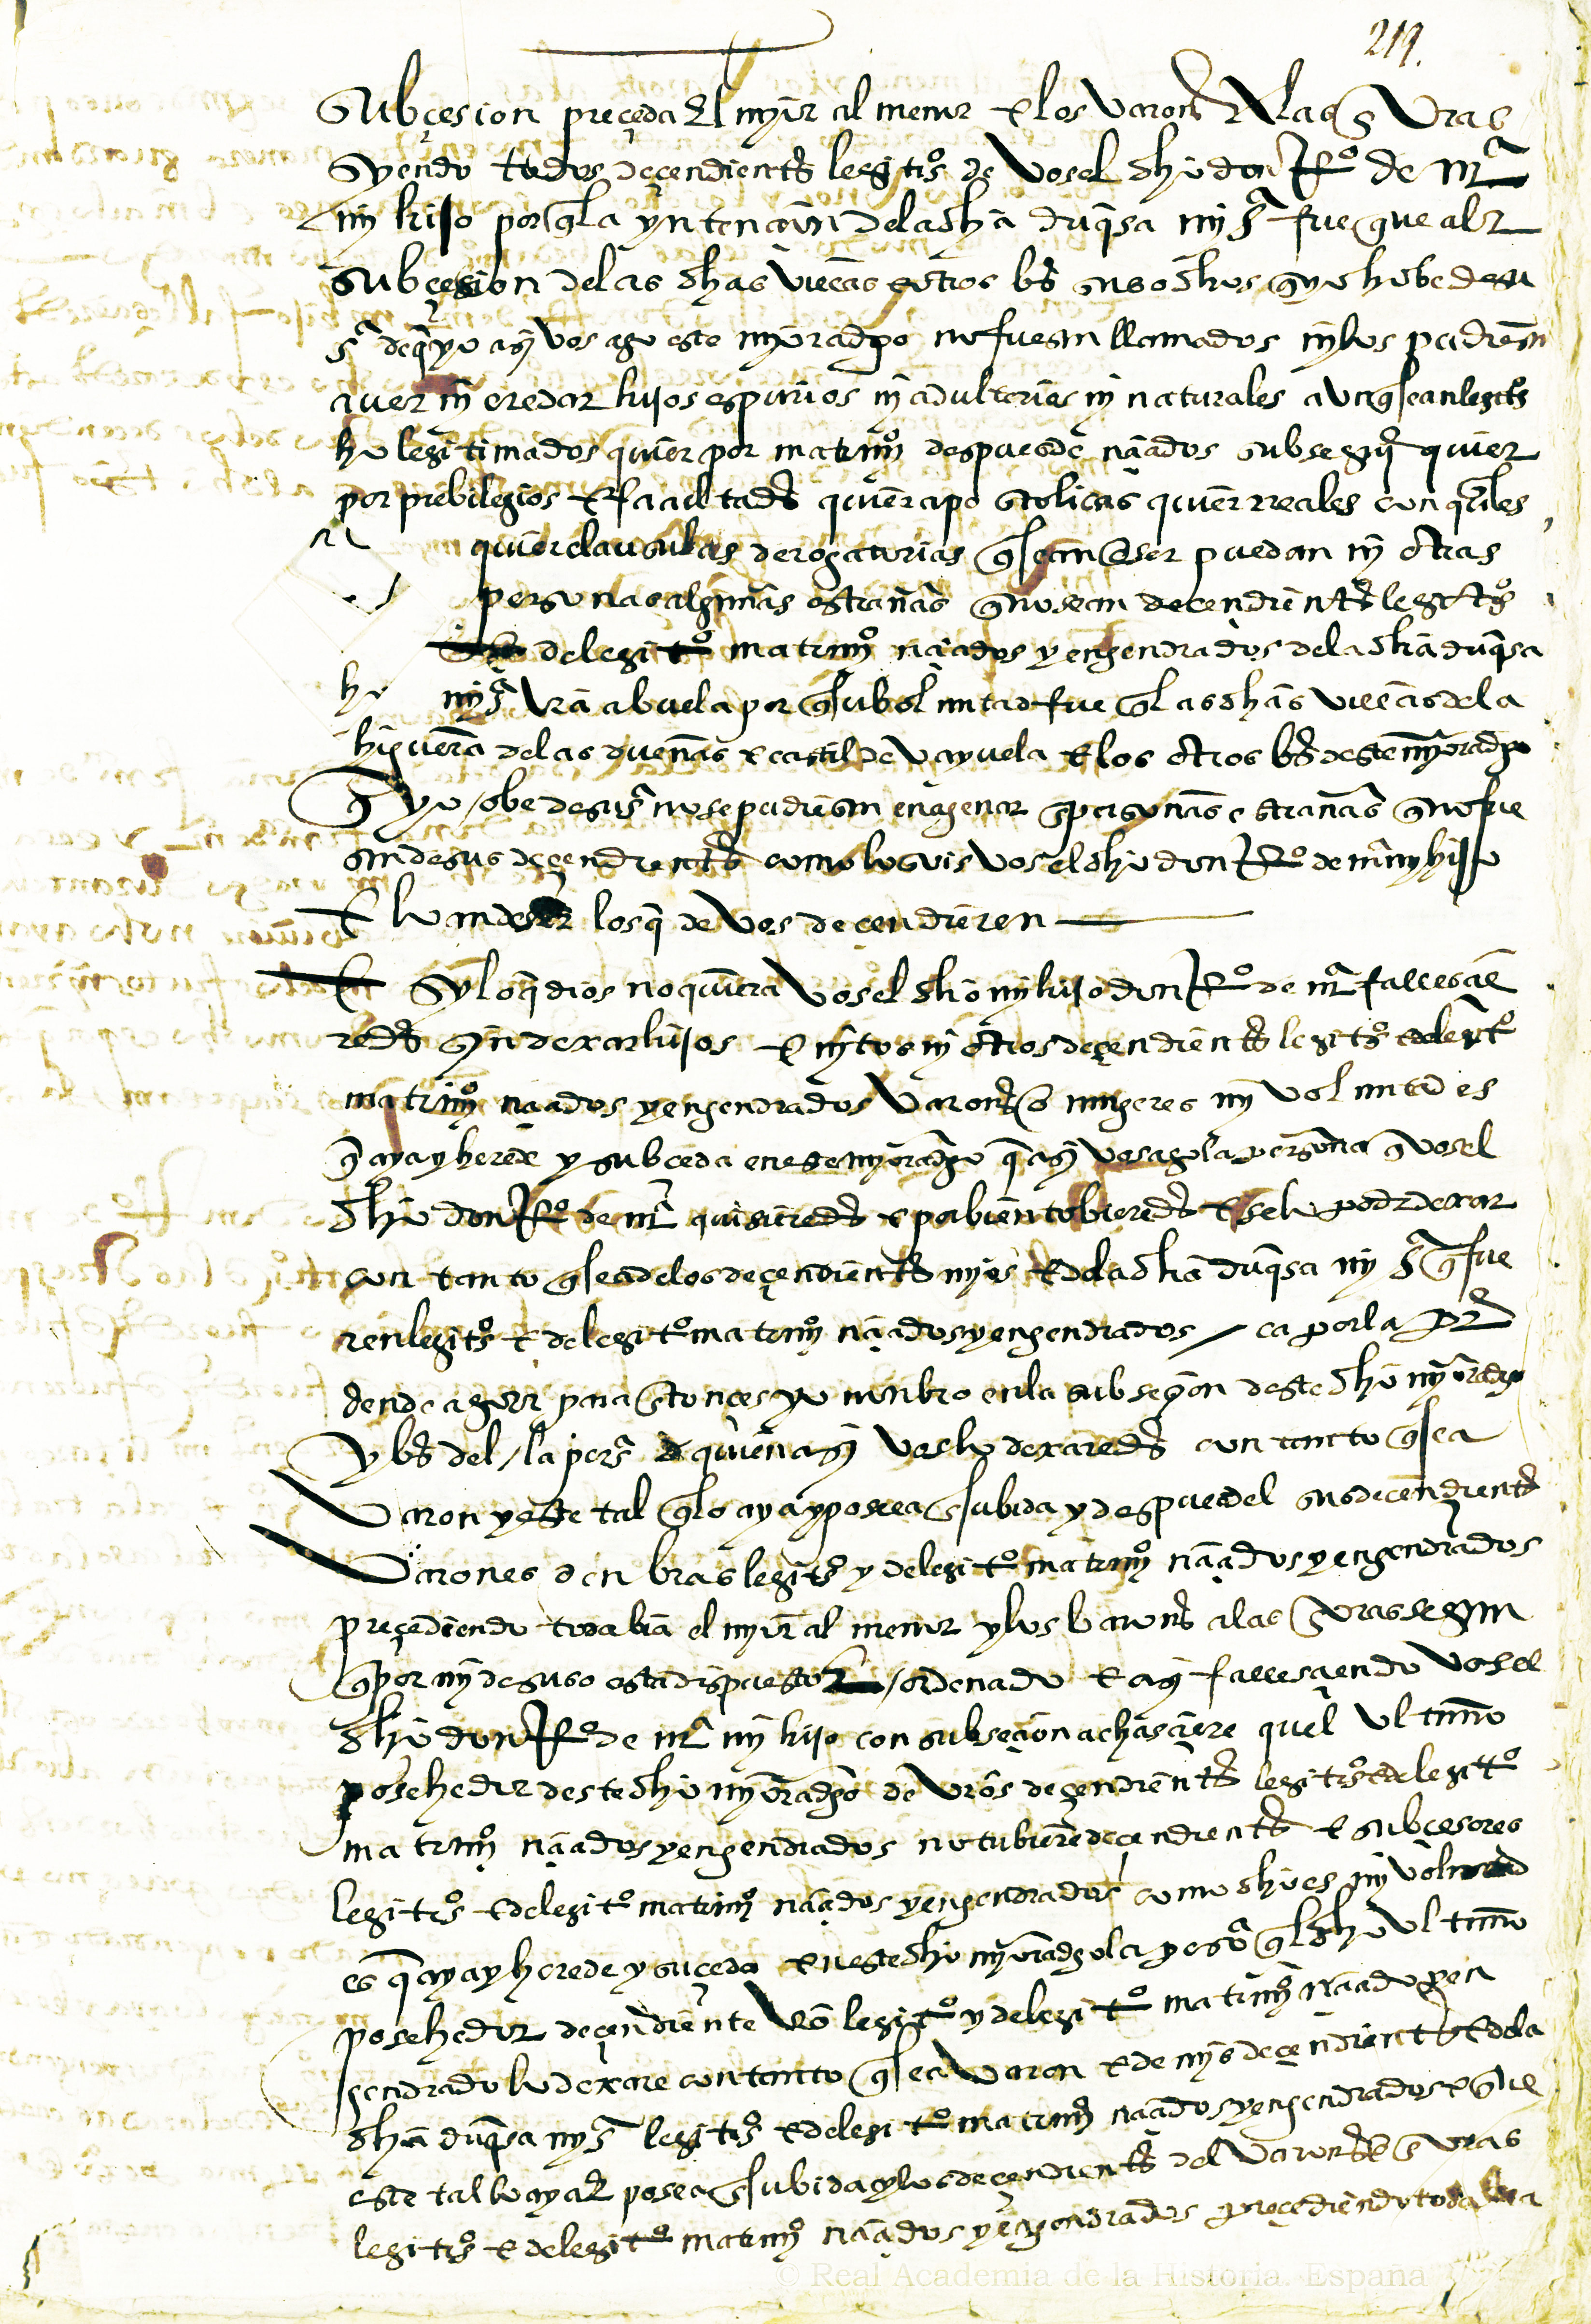 219.
subçesion preçeda el myor al menor e los varones a las henbras
syendo todos deçendientes legitos de vos el dho don Ro de ma
my hijo por q la yntençion de la dha duqsa my sa fue que a la
subçesion de las dhas villas e otros bs suso dhos q yo hube de su
sa de q yo asy vos ago este myoradgo no fuesen llamados ny los pudiesen
aver ny eredar hijos espurios ny adulterios ny naturales avnq sean legitos
ho legitimados quier por matrimo despues de naçidos subsegº quier
por prebilegios e facultades quier apostolicas quier rreales con quales
quier clausulas derogatorias q sean o ser puedan ny otras
personas algunas estrañas q no sean decendientes legitos
de legito matrimo naçidos y engendrados de la dha duqsa
my sa vra abuela por q su boluntad fue q las dhas villas de la
higuera de las dueñas e castil de vayuela e los otros bs deste myoradgo
q yo obe de su sa no se pudiesen enagenar en personas estrañas q no fue
sen de sus deçendientes como lo sois vos el dho don Ro de ma my hijo
e lo an de ser los q de vos deçendieren
E sy lo q dios no quiera vos el dho my hijo don Ro de ma falleçie
redes syn dexar hijos e nytos ny otros deçendientes legitos e de legito
matrimo naçidos y engendrados varones o mugeres my voluntad es
q aya y herede y subceda en este myoradgo q asy vos ago la persona q vos el
dho don Ro de ma quisieredes e por bien tobieredes e se lo podes dexar
con tanto q sea de los deçendientes myos e de la dha duqsa my sa q fue
ren legitos e de legito matrimo naçidos y engendrados / ca por la pre
dende agora para entonces yo nonbro en la subseçion deste dho myoradgo
y bs del / la persa a quien asy vos lo dexaredes con tanto q sea
varon y este tal q lo aya y posea en su bida y despues del sus decendientes
varones o henbras legitos y de legito matrimo naçidos y engendrados
preçediendo toda bia el myor al menor y los barones a las henbras segun
q por my de suso esta dispuesto e / ordenado e asy fallesçiendo vos el
dho don Ro de ma my hijo con subseçion acaesçiere quel vltimo
posehedor deste dho myoradgo de vros deçendientes legitos e de legito
matrimo naçidos y engendrados no tubiere deçendientes e subçesores
legitos e de legito matrimo naçidos y engendrados como dho es my voluntad
es q aya y herede y suçeda en este dho myoradgo la persona q el dho vltimo
posehedor deçendiente vro legito y de legito matrimo naçido y en
gendrado lo dexare con tanto q sea varon e de mys deçendientes e de la
dha duqsa my sa legitos e de legito matrimo naçidos y engendrados e q
este tal lo aya e posea en su bida y los deçendientes del varones o henbras
legitos e de legito matrimo naçidos y engendrados preçediendo toda bia
© Real Academia de la Historia. España